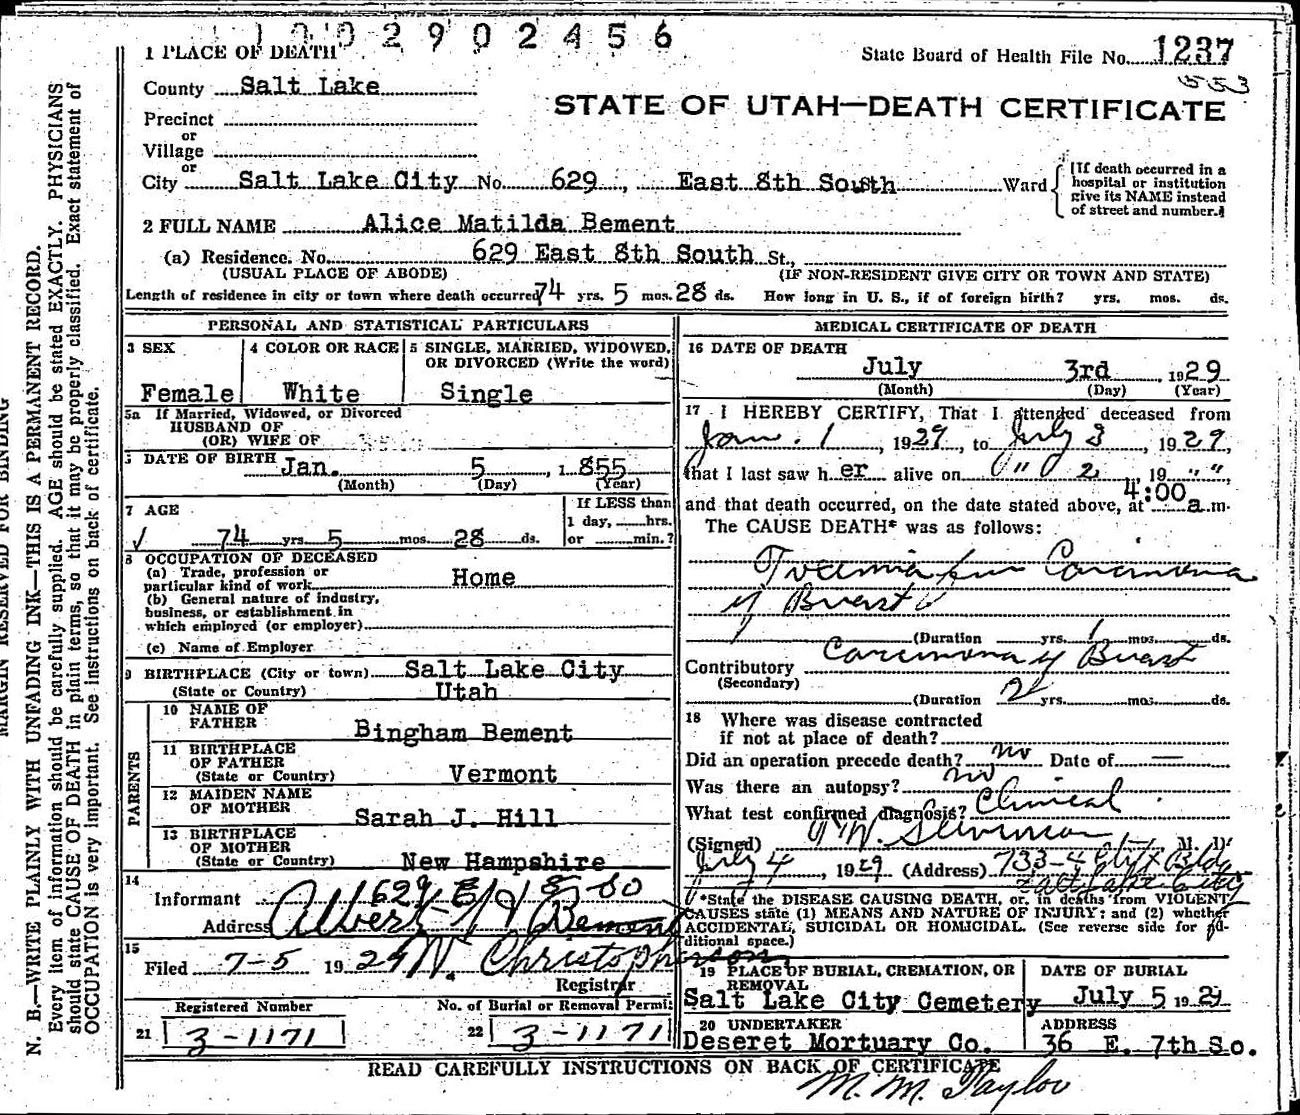 1 0 0 2 9 0 2 4 5 6
1 PLACE OF DEATH
State Board of Health File No. 1237
553
County Salt Lake
STATE OF UTAH—DEATH CERTIFICATE
Precinct
or
Village
or
City Salt Lake City No. 629, East 8th South Ward
[If death occurred in a
hospital or institution
give its NAME instead
of street and number.]
2 FULL NAME Alice Matilda Bement
(a) Residence. No. 629 East 8th South St.,
(USUAL PLACE OF ABODE) (IF NON-RESIDENT GIVE CITY OR TOWN AND STATE)
Length of residence in city or town where death occurred 74 yrs. 5 mos. 28 ds. How long in U. S., if of foreign birth? yrs. mos. ds.
PERSONAL AND STATISTICAL PARTICULARS
3 SEX
Female
4 COLOR OR RACE
White
5 SINGLE, MARRIED, WIDOWED,
OR DIVORCED (Write the word)
Single
5a If Married, Widowed, or Divorced
HUSBAND OF
(OR) WIFE OF
DATE OF BIRTH Jan. 5, 1855
(Month) (Day) (Year)
7 AGE
74 yrs 5 mos 28 ds.
If LESS than
1 day, hrs.
or min.?
8 OCCUPATION OF DECEASED
(a) Trade, profession or
particular kind of work Home
(b) General nature of industry,
business, or establishment in
which employed (or employer)
(c) Name of Employer
9 BIRTHPLACE (City or town) Salt Lake City
(State or Country) Utah
PARENTS
10 NAME OF
FATHER Bingham Bement
11 BIRTHPLACE
OF FATHER
(State or Country) Vermont
12 MAIDEN NAME
OF MOTHER Sarah J. Hill
13 BIRTHPLACE
OF MOTHER
(State or Country) New Hampshire
14
Informant 629 E 8 So
Address Albert H Bement
15
Filed 7-5 1929 N. Christopherson
Registrar
Registered Number
21 3-1171
No. of Burial or Removal Permit
22 3-1171
MEDICAL CERTIFICATE OF DEATH
16 DATE OF DEATH
July 3rd, 1929
(Month) (Day) (Year)
17 I HEREBY CERTIFY, That I attended deceased from
Jan. 1, 1929, to July 3, 1929,
that I last saw her alive on " 2, 19 " ",
and that death occurred, on the date stated above, at 4:00 a.m.
The CAUSE DEATH* was as follows:
Carcinoma
of Breast
(Duration yrs. 1 mos. ds.
Contributory Carcinoma of Breast
(Secondary)
(Duration 2 yrs. mos. ds.
18 Where was disease contracted
if not at place of death?
Did an operation precede death? no Date of —
Was there an autopsy? no
What test confirmed diagnosis? Clinical
(Signed) M. D.
July 4, 1929 (Address) 733-4 Bldg
Salt Lake City
*State the DISEASE CAUSING DEATH, or, in deaths from VIOLENT
CAUSES state (1) MEANS AND NATURE OF INJURY; and (2) whether
ACCIDENTAL, SUICIDAL OR HOMICIDAL. (See reverse side for ad-
ditional space.)
19 PLACE OF BURIAL, CREMATION, OR
REMOVAL
Salt Lake City Cemetery
DATE OF BURIAL
July 5 1929
20 UNDERTAKER
Deseret Mortuary Co.
ADDRESS
36 E. 7th So.
READ CAREFULLY INSTRUCTIONS ON BACK OF CERTIFICATE
M. M. Taylor
MARGIN RESERVED FOR BINDING
N. B.—WRITE PLAINLY WITH UNFADING INK—THIS IS A PERMANENT RECORD.
Every item of information should be carefully supplied. AGE should be stated EXACTLY. PHYSICIANS
should state CAUSE OF DEATH in plain terms, so that it may be properly classified. Exact statement of
OCCUPATION is very important. See instructions on back of certificate.